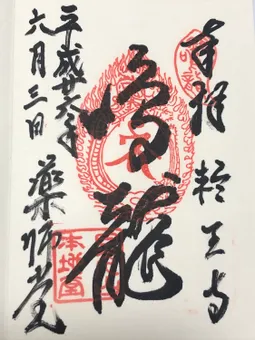 奉拝 輪王寺
鳴龍
平成廿六年
六月三日 薬師堂
本地堂